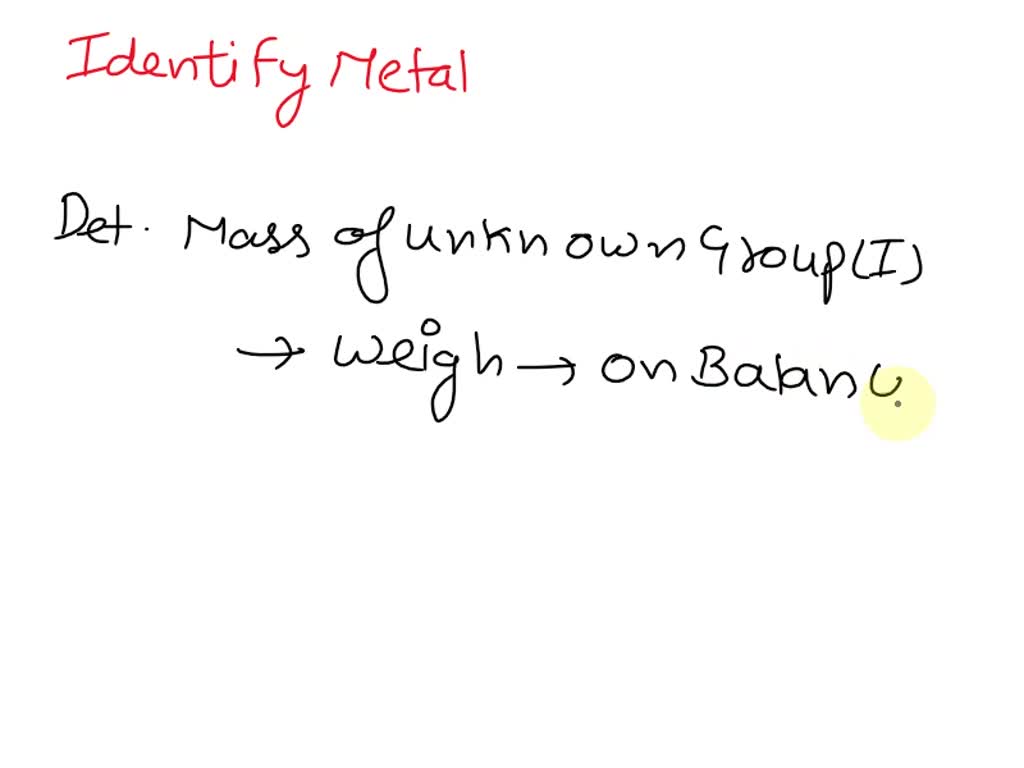 Identify Metal
Det. Mass of unknown Group(I)
→ weigh → on Balanc